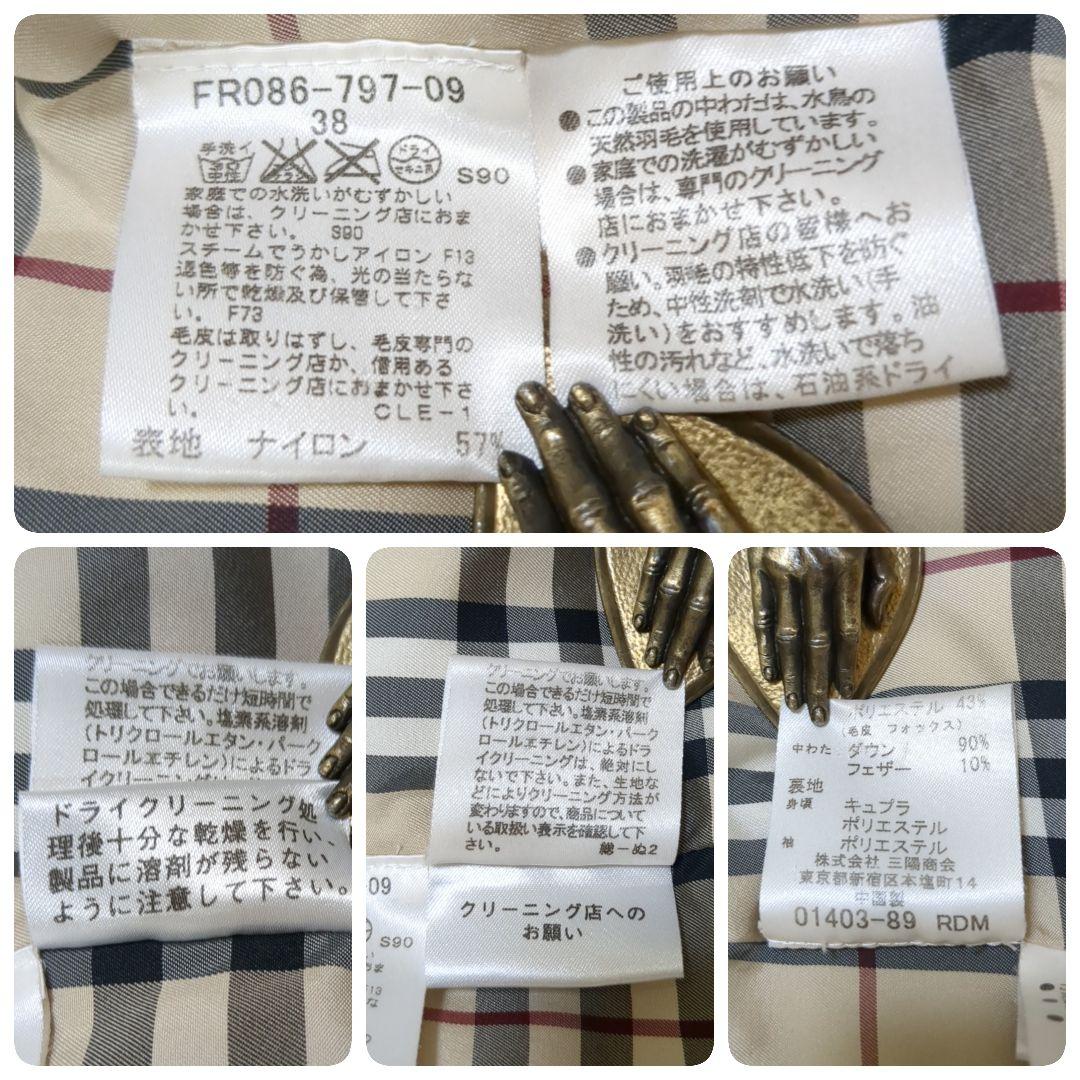 FR086-797-09
38
手洗イ
中性
ドライ
セキユ系
S90
家庭での水洗いがむずかしい
場合は、クリーニング店におま
かせ下さい。 S90
スチームでうかしアイロン F13
退色等を防ぐ為、光の当たらな
い所で乾燥及び保管して下さ
い。 F73
毛皮は取りはずし、毛皮専門の
クリーニング店か、信用ある
クリーニング店におまかせ下さ
い。 CLE-1
表地 ナイロン 57%
ご使用上のお願い
この製品の中わたは、水鳥の
天然羽毛を使用しています。
家庭での洗濯がむずかしい
場合は、専門のクリーニング
店におまかせ下さい。
クリーニング店の皆様へお
願い。羽毛の特性低下を防ぐ
ため、中性洗剤で水洗い(手
洗い)をおすすめします。油
性の汚れなど、水洗いで落ち
にくい場合は、石油系ドライ
クリーニングでお願いします。
この場合できるだけ短時間で
処理して下さい。塩素系溶剤
(トリクロールエタン・パーク
ロールエチレン)によるドラ
イクリーニングは
ドライクリーニング処
理後十分な乾燥を行い、
製品に溶剤が残らない
ように注意して下さい。
クリーニングでお願いします。
この場合できるだけ短時間で
処理して下さい。塩素系溶剤
(トリクロールエタン・パーク
ロールエチレン)によるドラ
イクリーニングは、絶対にし
ないで下さい。また、生地な
どによりクリーニング方法が
変わりますので、商品について
いる取扱い表示を確認して下
さい。 総ーぬ2
09
S90
クリーニング店への
お願い
ポリエステル 43%
(毛皮 フォックス)
中わた ダウン 90%
フェザー 10%
裏地
身頃 キュプラ
ポリエステル
袖 ポリエステル
株式会社 三陽商会
東京都新宿区本塩町14
中国製
01403-89 RDM